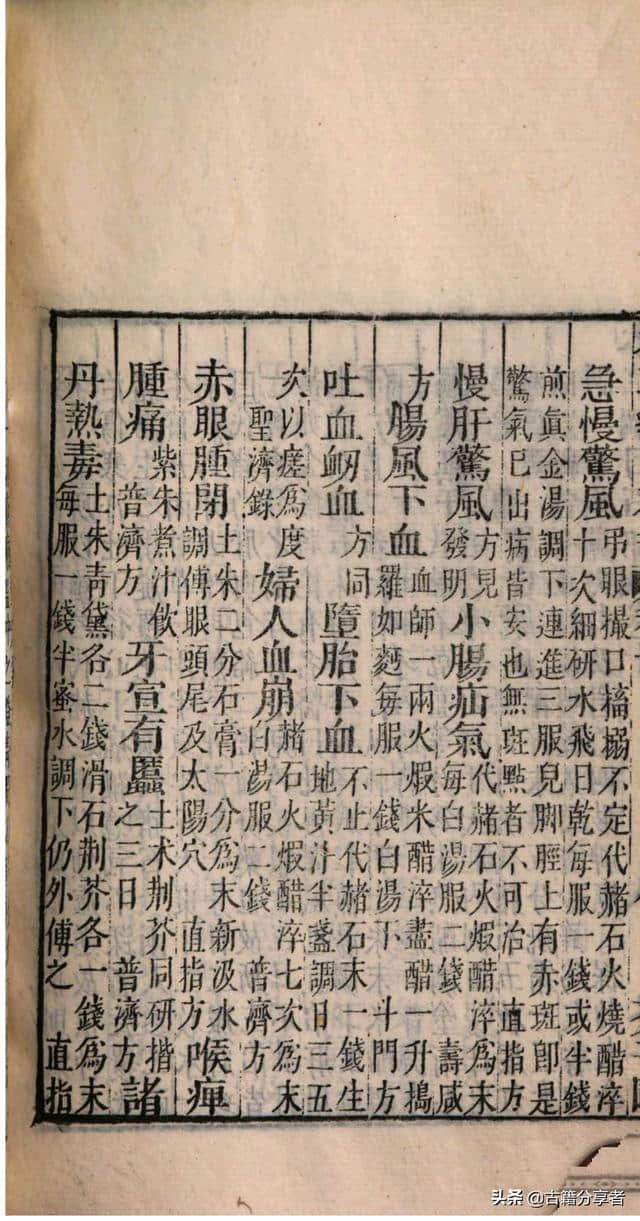 急慢驚風吊眼撮口搐搦不定代赭石火燒醋淬十次細研水飛日乾每服一錢或半錢
煎眞金湯調下連進三服兒脚脛上有赤斑卽是驚氣已出病皆安也無斑點者不可治直指方
慢肝驚風方見發明小腸疝氣代赭石火煆醋淬爲末每白湯服二錢壽咸
方腸風下血血師一兩火煆米醋淬盡醋一升搗羅如麪每服一錢白湯下斗門方
吐血衂血方同墮胎下血不止代赭石末一錢生地黃汁半盞調日三五
次以瘥爲度聖濟錄婦人血崩赭石火煆醋淬七次爲末白湯服二錢普濟方
赤眼腫閉土朱二分石膏一分爲末新汲水調傅眼頭尾及太陽穴直指方喉痺
腫痛紫朱煮汁飲普濟方牙宣有䘌土术荆芥同研揩之三日普濟方諸
丹熱毒土朱青黛各二錢滑石荆芥各一錢爲末每服一錢半蜜水調下仍外傅之直指
头条 @古籍分享者